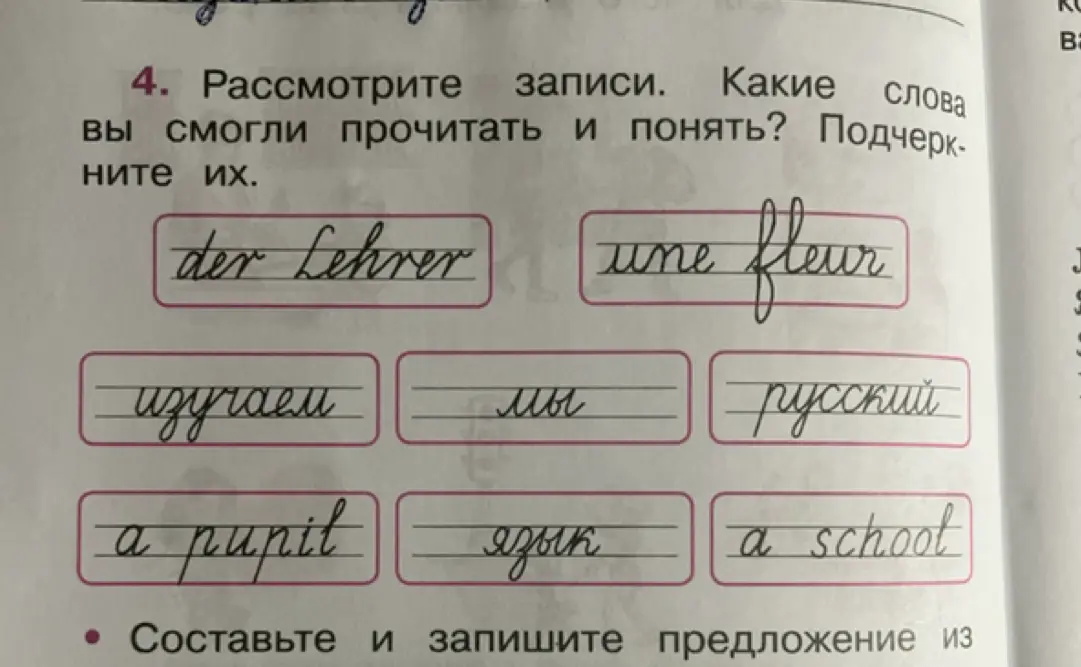 4. Рассмотрите записи. Какие слова
вы смогли прочитать и понять? Подчерк-
ните их.
der Lehrer une fleur
изучаем мы русский
a pupil язык a school
• Составьте и запишите предложение из